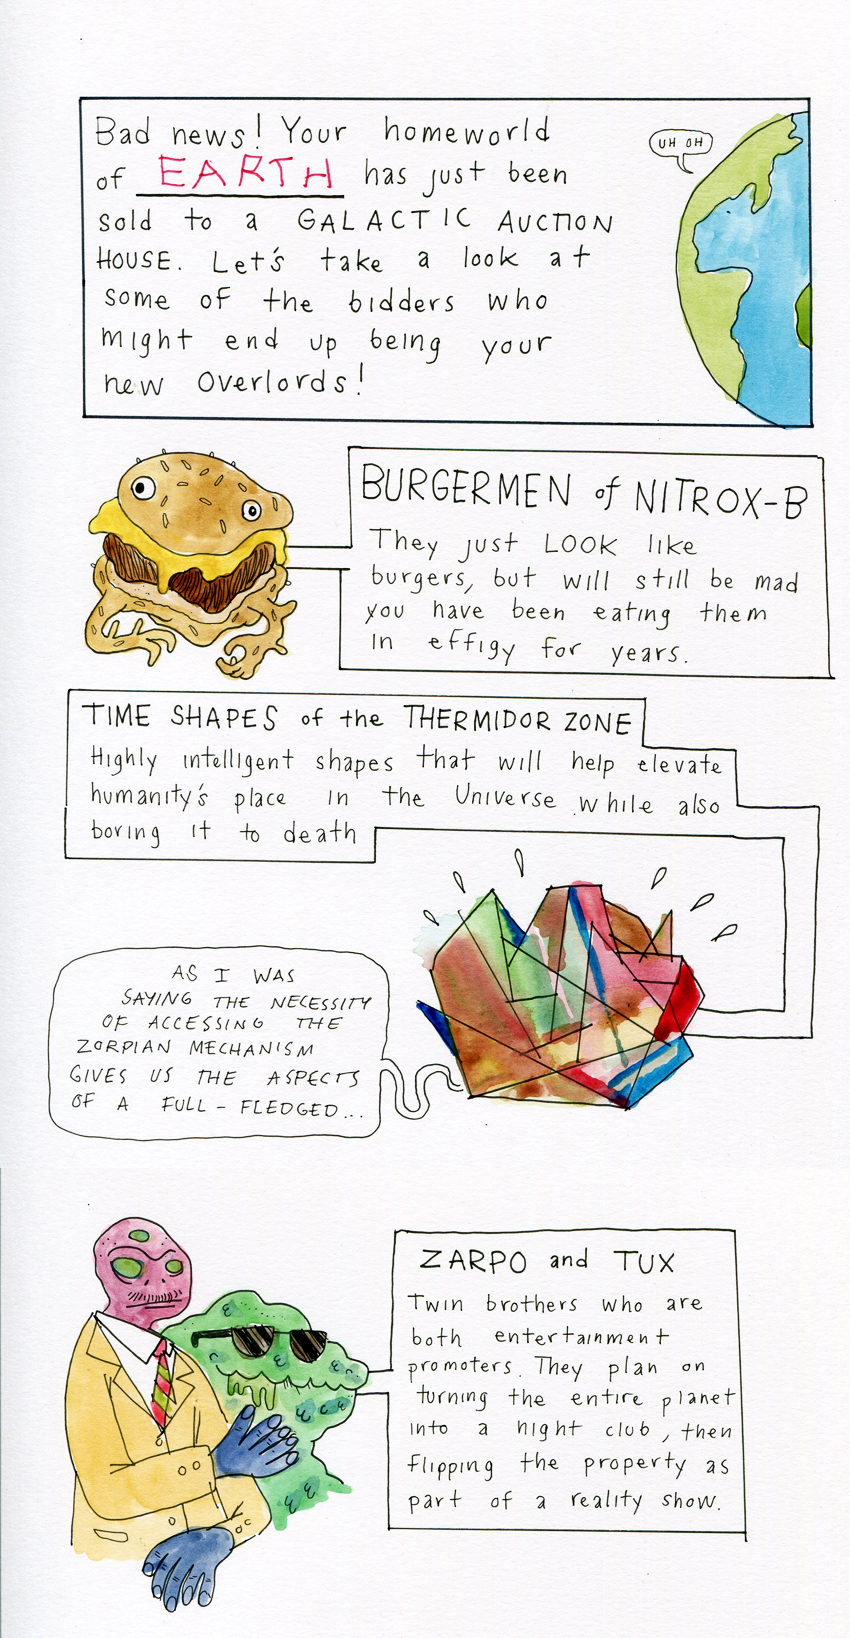 Bad news! Your homeworld
of EARTH has just been
sold to a GALACTIC AUCTION
HOUSE. Let's take a look at
some of the bidders who
might end up being your
new overlords!
UH OH
BURGERMEN of NITROX-B
They just LOOK like
burgers, but will still be mad
you have been eating them
in effigy for years.
TIME SHAPES of the THERMIDOR ZONE
Highly intelligent shapes that will help elevate
humanity's place in the Universe while also
boring it to death
AS I WAS
SAYING THE NECESSITY
OF ACCESSING THE
ZORPIAN MECHANISM
GIVES US THE ASPECTS
OF A FULL-FLEDGED...
ZARPO and TUX
Twin brothers who are
both entertainment
promoters. They plan on
turning the entire planet
into a night club, then
flipping the property as
part of a reality show.